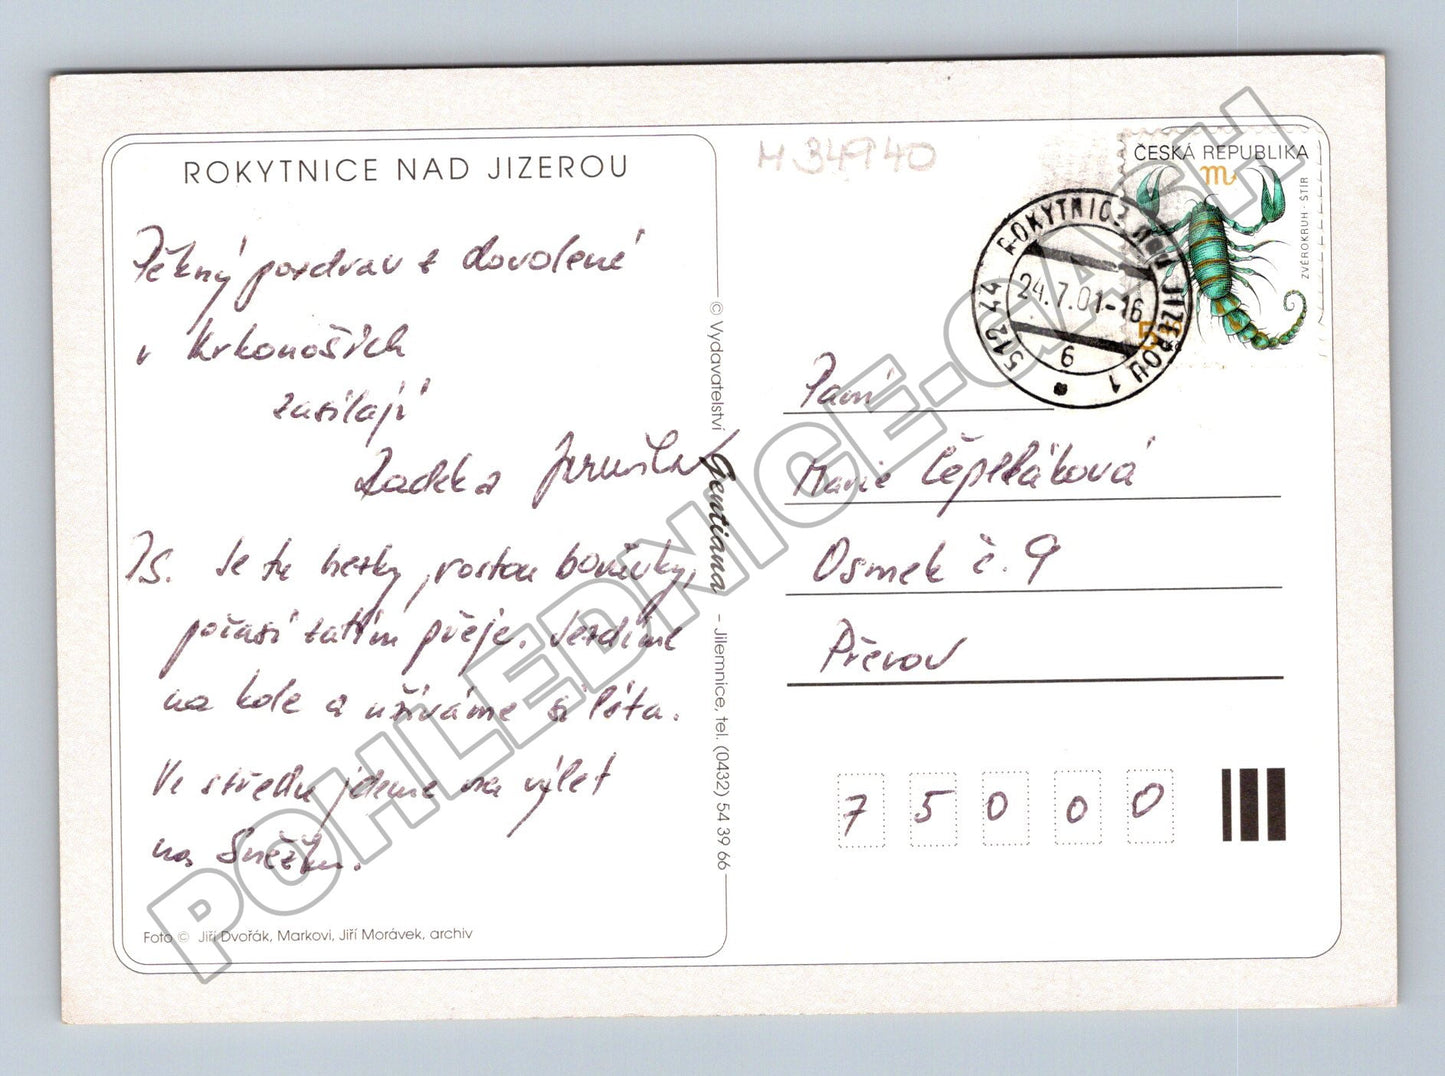 ROKYTNICE NAD JIZEROU
Pěkný pozdrav z dovolené
v Krkonoších
zasílají
Radek a
Ps. Je tu hezky, rostou borůvky,
počasí zatím přeje. Jezdíme
na kole a užíváme si léta.
Ve středu jdeme na výlet
na Sněžku.
Foto © Jiří Dvořák, Markovi, Jiří Morávek, archiv
© Vydavatelství Gentiana – Jilemnice, tel. (0432) 54 39 66
M 34940
ČESKÁ REPUBLIKA
ZVĚROKRUH · ŠTÍR
512 44 ROKYTNICE N. JIZEROU 1
24.7.01-16
6
Paní
Marie
Osmek č. 9
Přerov
7 5 0 0 0
POHLEDNICE-CASH